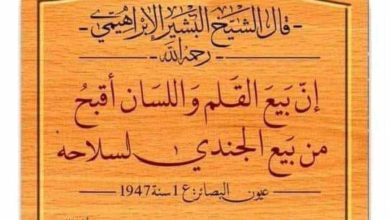 - قال الشيخ البشير الإبراهيمي -
- رحمه الله -
إنّ بَيعَ القَلمِ وَاللسَان أقبحُ
من بَيعِ الجنديِ لسلاحه
عيون البصائر: ع 1 سنة 1947